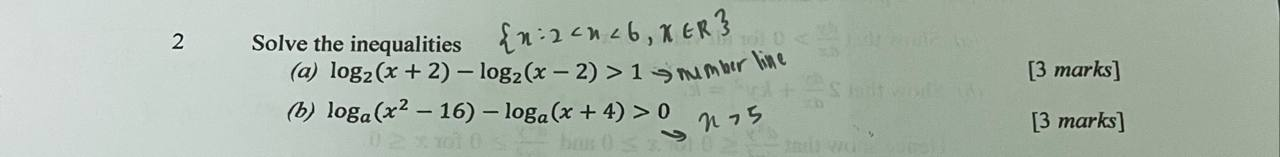 2 Solve the inequalities {x : 2 < x < 6, x ∈ R}
(a) log₂(x + 2) − log₂(x − 2) > 1 → number line [3 marks]
(b) logₐ(x² − 16) − logₐ(x + 4) > 0 → x > 5 [3 marks]